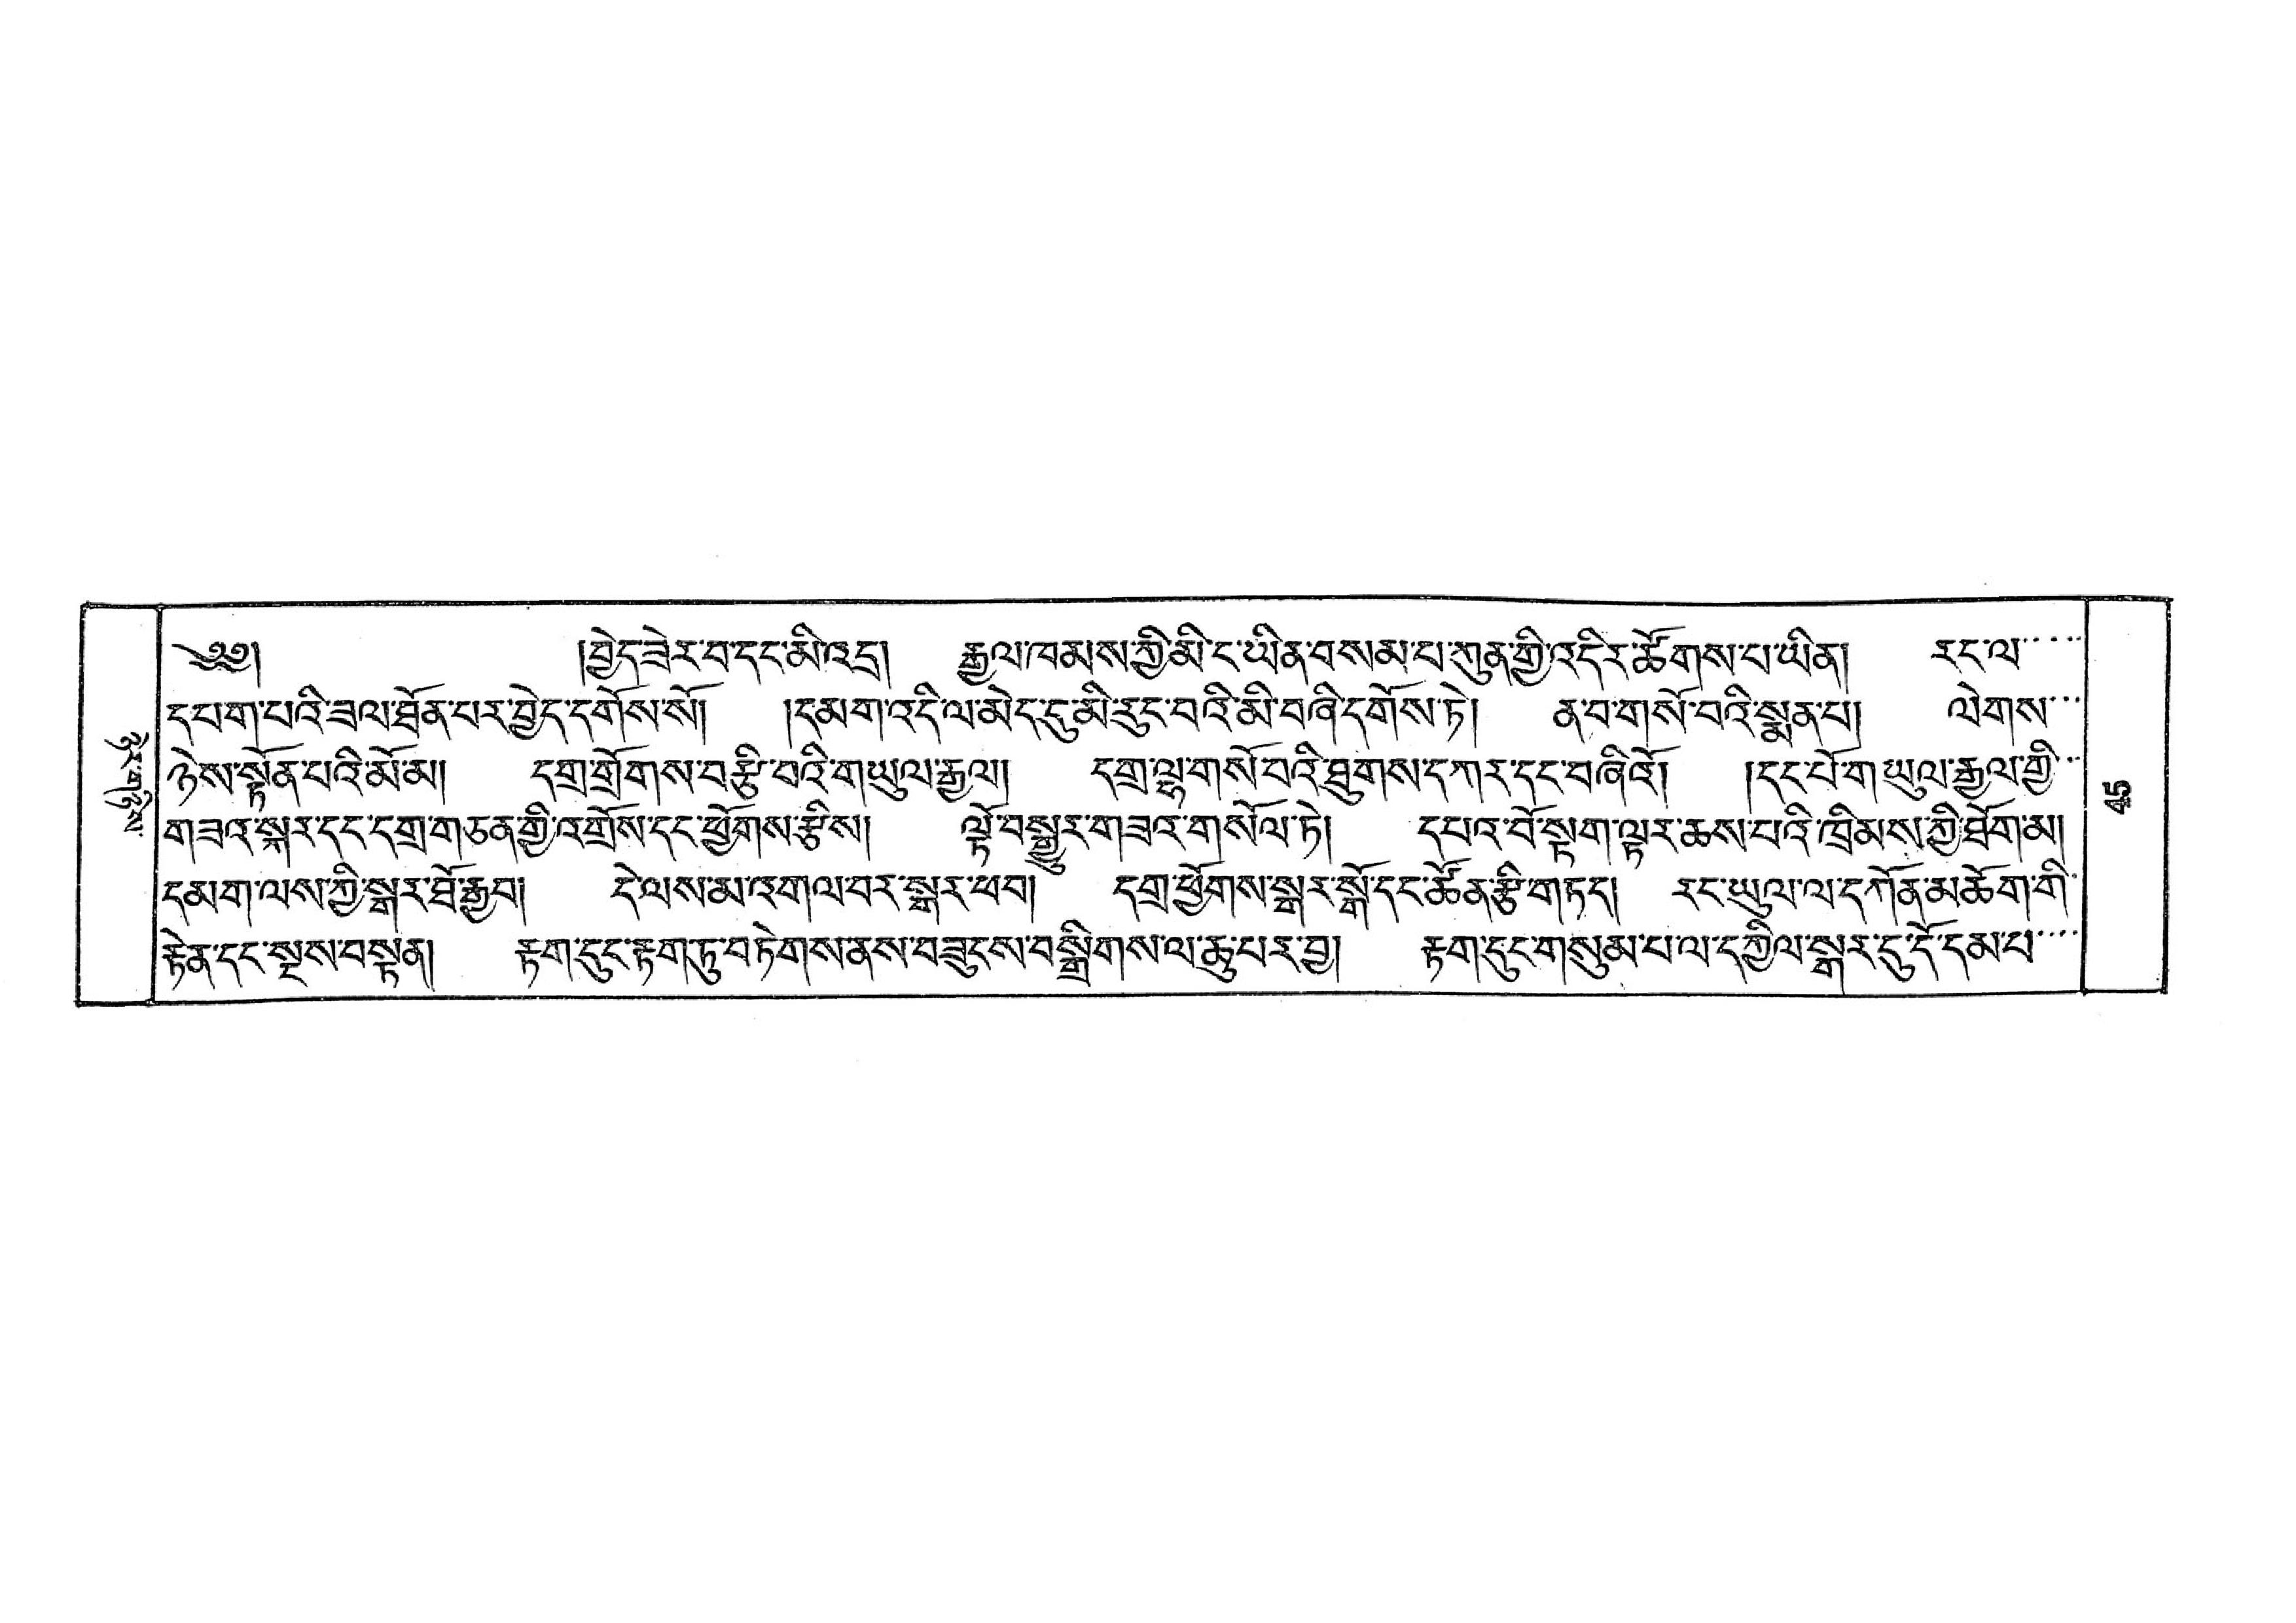 ༄༅། །བྱེད་ཟེར་བ་དང་མི་འདྲ། རྒྱལ་ཁམས་ཀྱི་མི་ང་ཡིན་བསམ་པ་ཀུན་གྱི་འདིར་ཚོགས་པ་ཡིན། རང་ལ་་་་་
དཔག་པའི་ཟལ་ཐོན་པར་བྱེད་དགོས་སོ། །དམག་འདི་ལ་མེད་དུ་མི་རུང་བའི་མི་བཞི་དགོས་ཏེ། ན་བ་གསོ་བའི་སྨན་པ། ལེགས་་་
ཉེས་སྟོན་པའི་མོ་མ། དགྲ་གྲོགས་བརྩི་བའི་གཡུལ་རྒྱལ། དགྲ་ལྷ་གསོ་བའི་ཐུགས་དཀར་དང་བཞིའོ། །དང་པོ་གཡུལ་རྒྱལ་གྱི་་་
གཟའ་སྐར་དང་དགྲ་གཅན་གྱི་འགྲོས་དང་ཕྱོགས་རྩིས། ལྟོ་བསྒྱུར་གཟའ་གསོལ་ཏེ། དཔའ་བོ་སྟག་ལྟར་ཆས་པའི་ཁྲིམས་ཀྱི་ཐོག་མ།
དམག་ལས་ཀྱི་སྒར་ཐོ་རྒྱབ། དེ་ལས་མ་འགལ་བར་སྒར་ཕབ། དགྲ་ཕྱོགས་སྒར་སྒོ་དང་ཚོན་རྩི་གཏད། རང་ཡུལ་ལ་དཀོན་མཆོག་གི་
རྟེན་དང་སྔས་བསྟན། རྟག་དུང་རྟག་ཏུ་བཏེགས་ནས་བཟུངས་བསྒྲིགས་ལ་ཆུ་པར་བྱ། རྟག་དུང་གསུམ་པ་ལ་དཀྱིལ་སྒར་དུ་དོ་དམ་པ་་་་